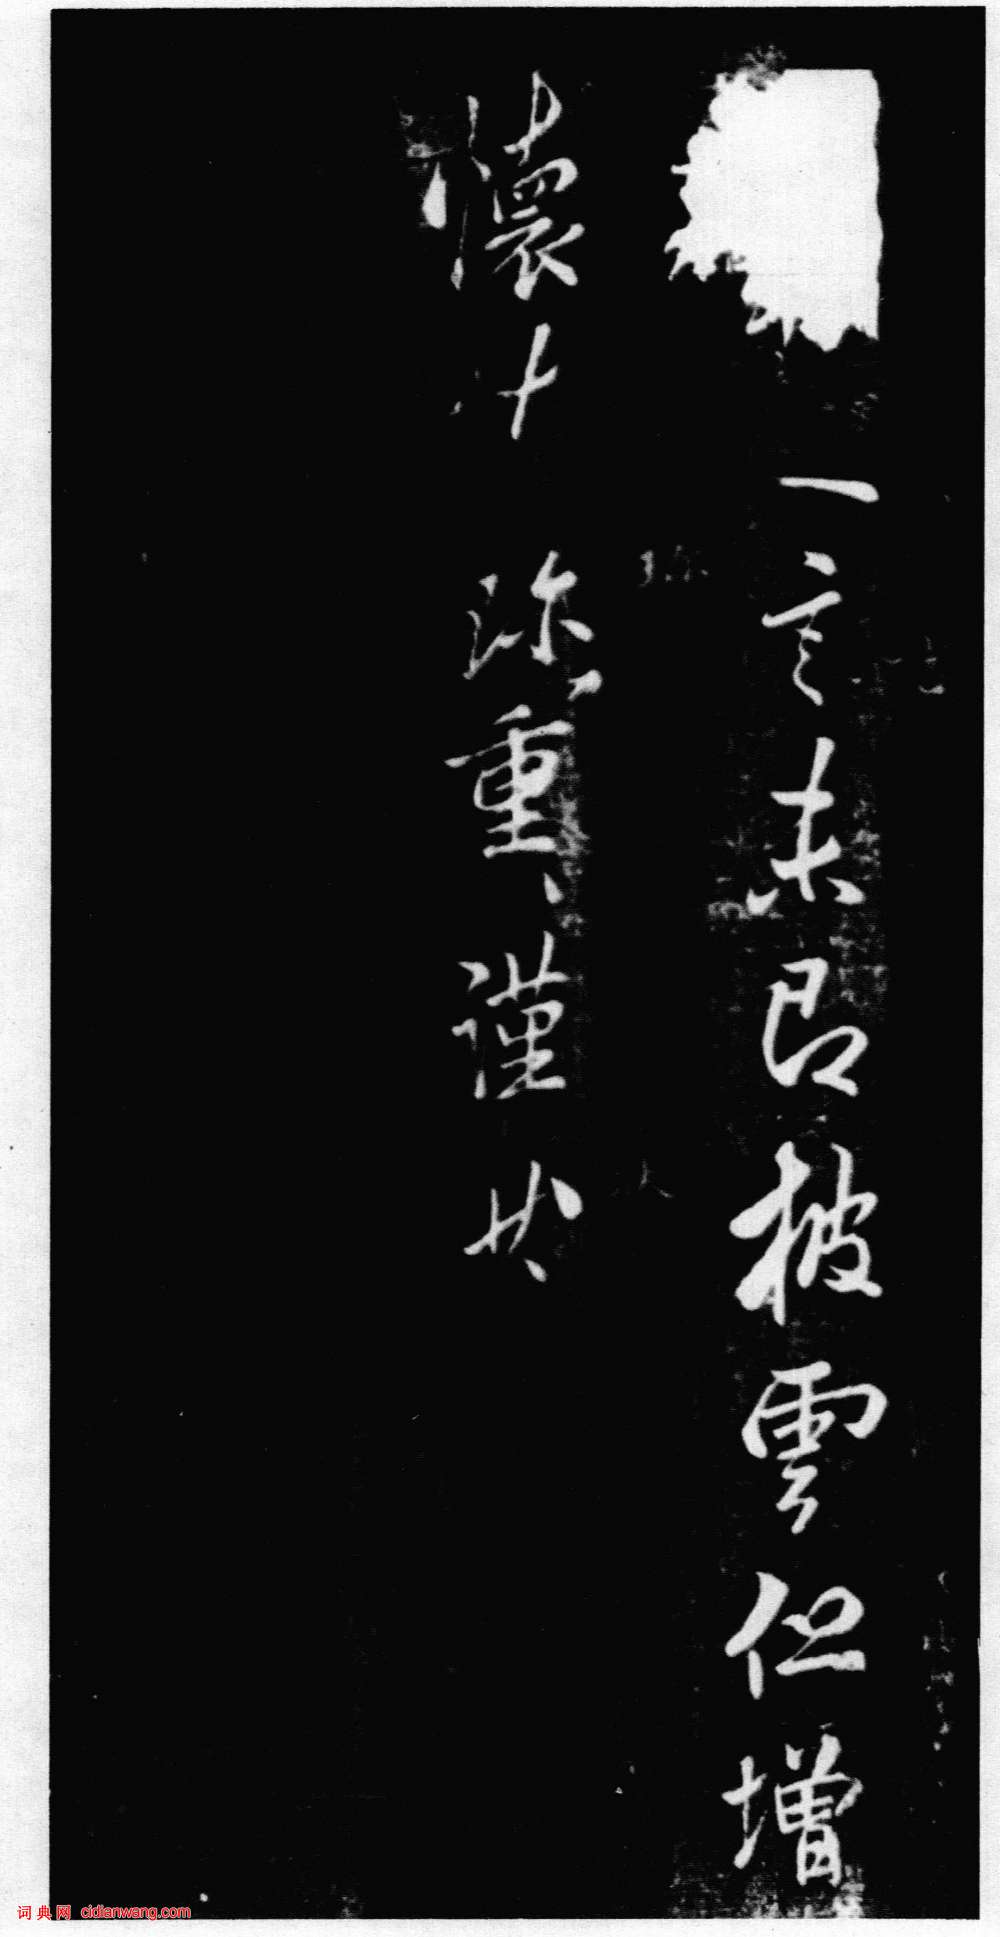 一言未即披雲但增
懷珍重謹
词典网 cidianwang.com